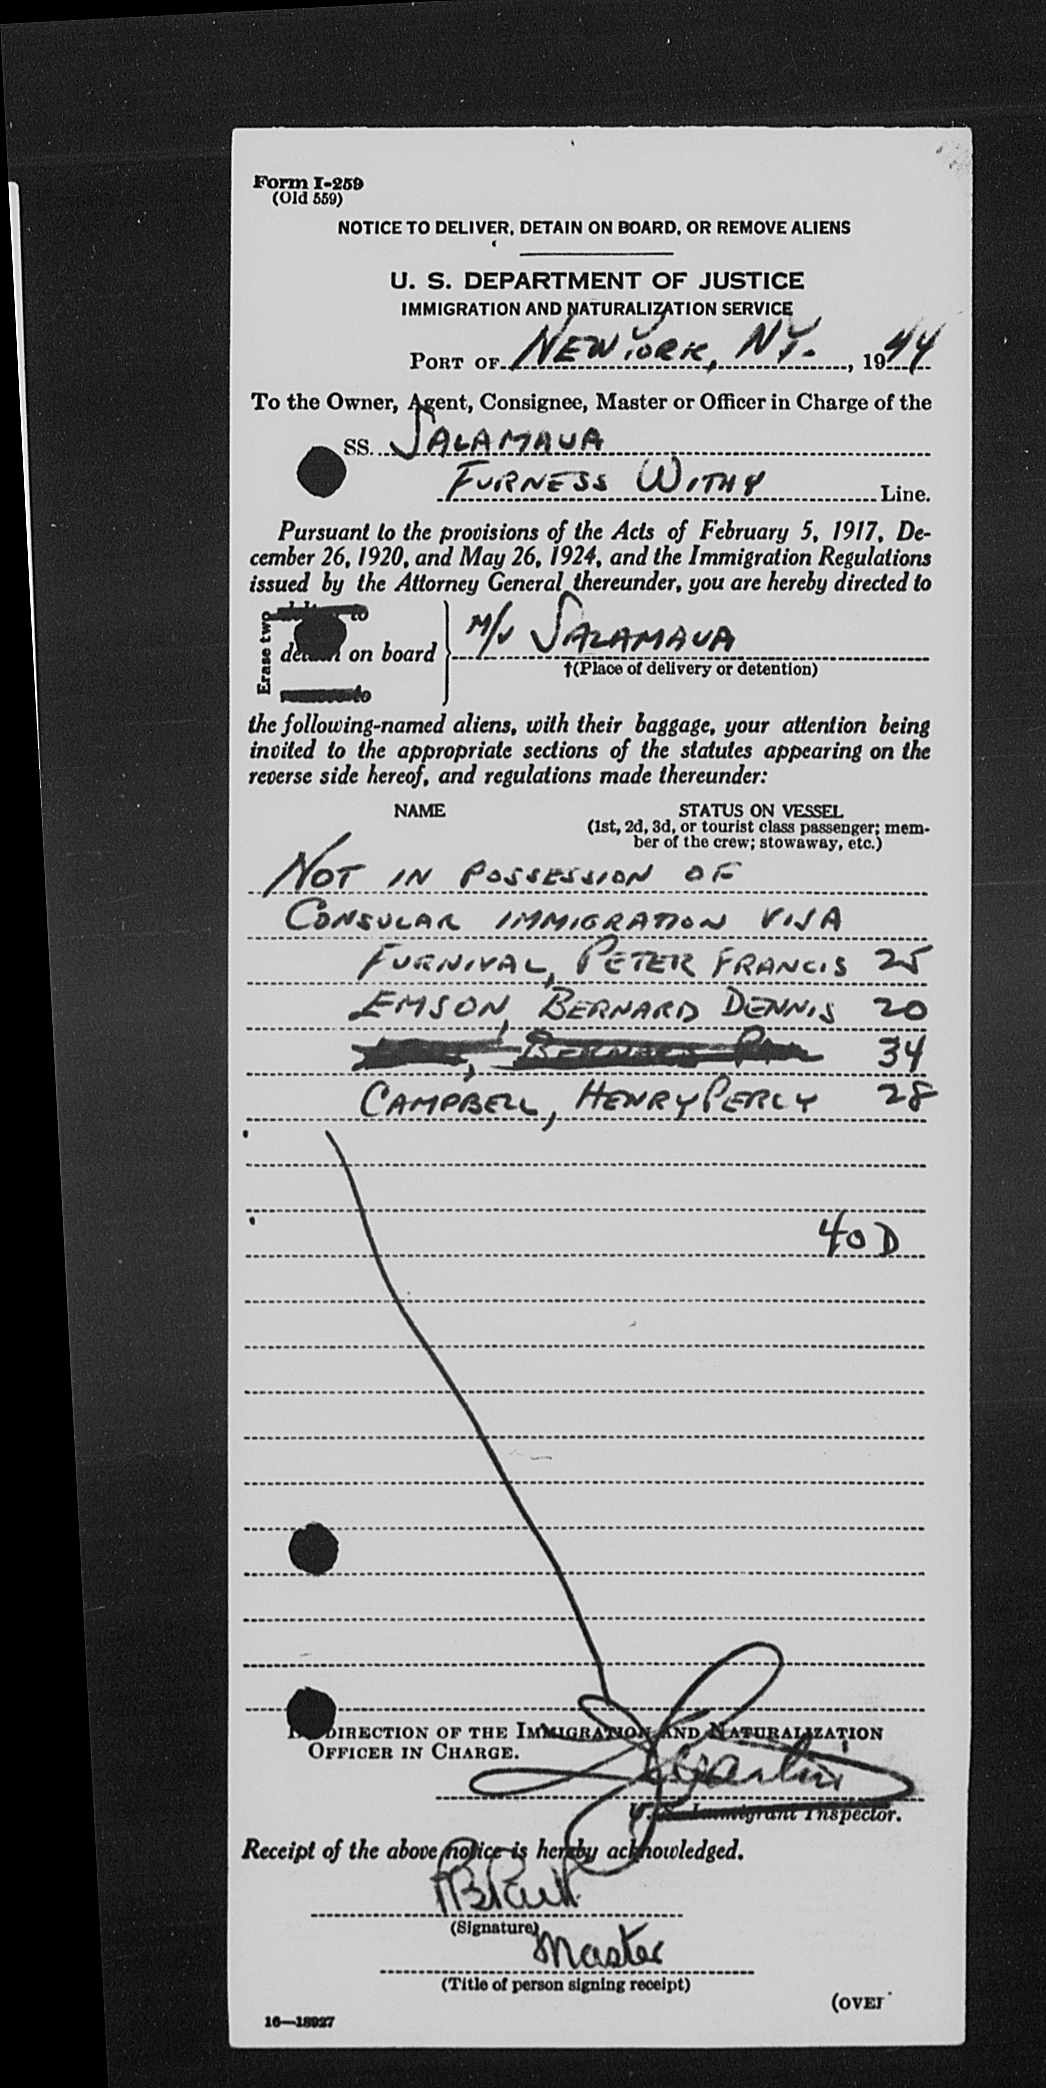 Form I-259
(Old 559)
NOTICE TO DELIVER, DETAIN ON BOARD, OR REMOVE ALIENS
U. S. DEPARTMENT OF JUSTICE
IMMIGRATION AND NATURALIZATION SERVICE
PORT OF NEW YORK, NY. , 1944
To the Owner, Agent, Consignee, Master or Officer in Charge of the
SS. SALAMAUA
FURNESS WITHY Line.
Pursuant to the provisions of the Acts of February 5, 1917, De-
cember 26, 1920, and May 26, 1924, and the Immigration Regulations
issued by the Attorney General thereunder, you are hereby directed to
Erase two
to
detain on board M/V SALAMAUA
†(Place of delivery or detention)
to
the following-named aliens, with their baggage, your attention being
invited to the appropriate sections of the statutes appearing on the
reverse side hereof, and regulations made thereunder:
NAME STATUS ON VESSEL
(1st, 2d, 3d, or tourist class passenger; mem-
ber of the crew; stowaway, etc.)
NOT IN POSSESSION OF
CONSULAR IMMIGRATION VISA
FURNIVAL, PETER FRANCIS 25
EMSON, BERNARD DENNIS 20
34
CAMPBELL, HENRY PERCY 28
40 D
DIRECTION OF THE IMMIGRATION AND NATURALIZATION
OFFICER IN CHARGE.
U. S. Immigrant Inspector.
Receipt of the above notice is hereby acknowledged.
(Signature)
Master
(Title of person signing receipt)
(OVER
16—18927